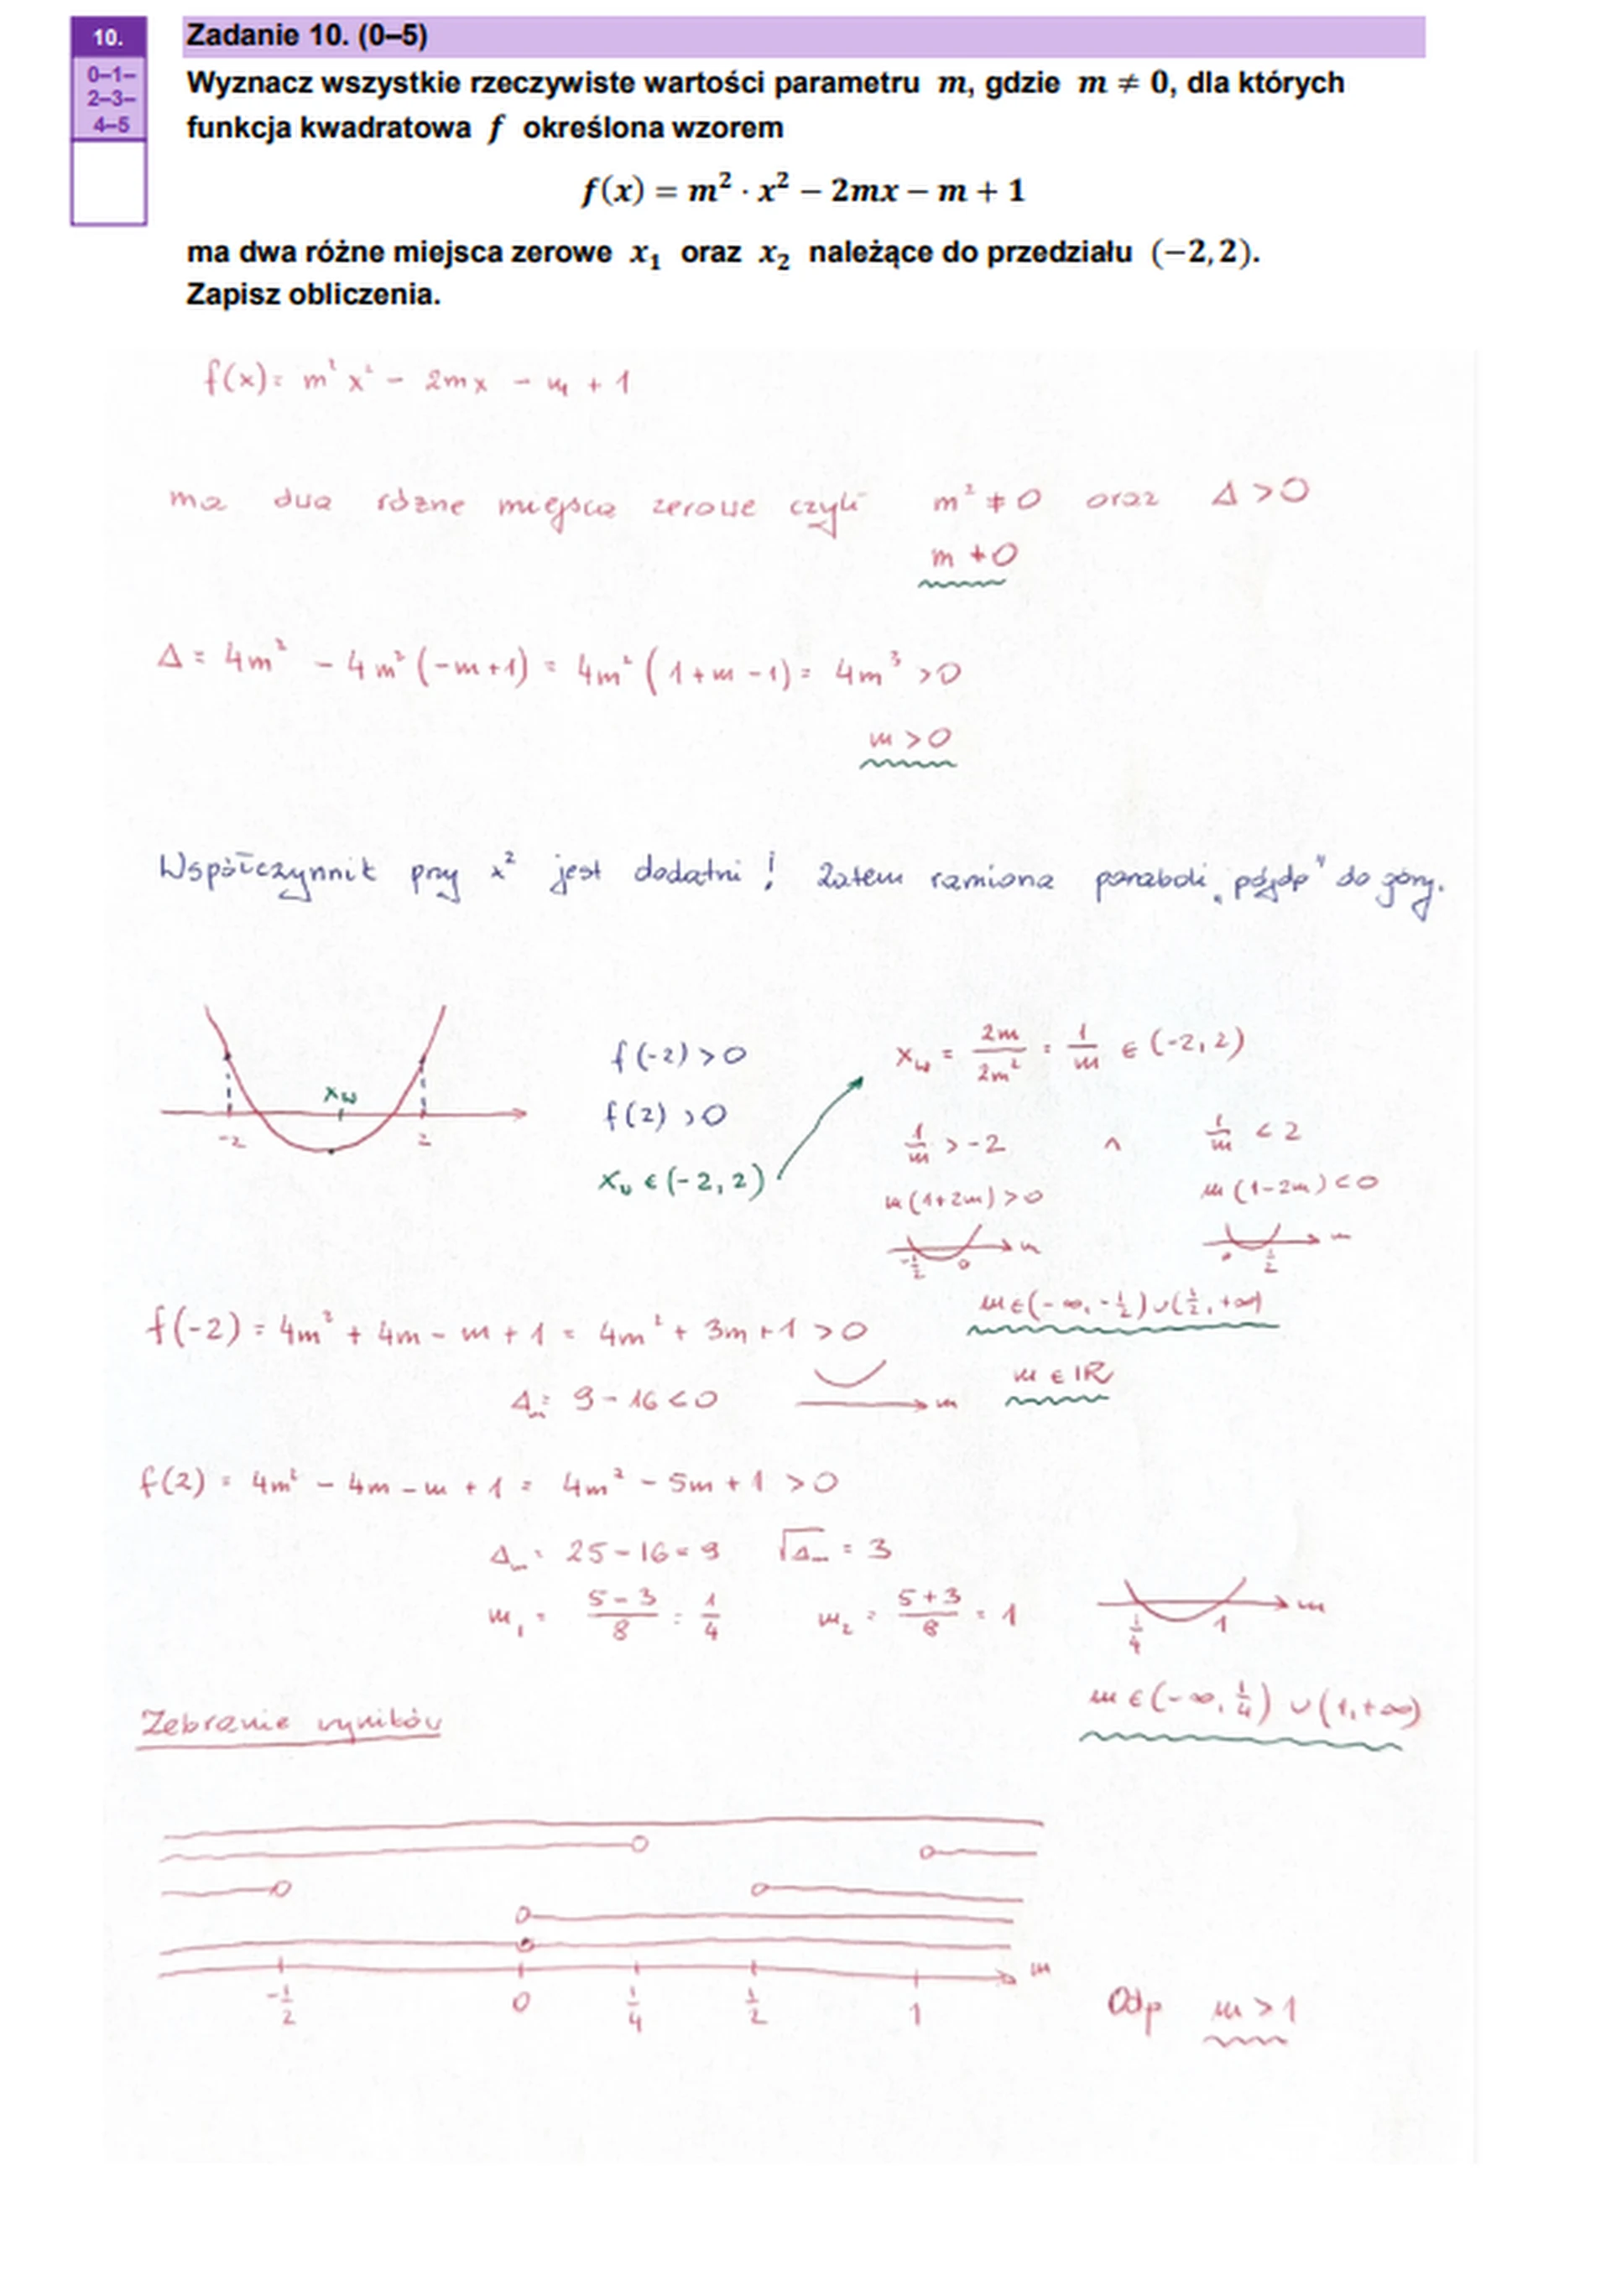 10.
0–1–
2–3–
4–5
Zadanie 10. (0–5)
Wyznacz wszystkie rzeczywiste wartości parametru m, gdzie m ≠ 0, dla których
funkcja kwadratowa f określona wzorem
f(x) = m² · x² − 2mx − m + 1
ma dwa różne miejsca zerowe x₁ oraz x₂ należące do przedziału (−2, 2).
Zapisz obliczenia.
f(x) = m² x² − 2mx − m + 1
ma dwa różne miejsca zerowe czyli m² ≠ 0 oraz Δ > 0
m ≠ 0
Δ = 4m² − 4m² (−m+1) = 4m² (1+m−1) = 4m³ > 0
m > 0
Współczynnik przy x² jest dodatni! Zatem ramiona paraboli „pójdą" do góry.
f(−2) > 0
f(2) > 0
x_w ∈ (−2, 2)
x_w = 2m/2m² = 1/m ∈ (−2, 2)
1/m > −2 ∧ 1/m < 2
m(1+2m) > 0 m(1−2m) < 0
x_w
−2 2
−1/2 0 m 0 1/2 m
m ∈ (−∞, −1/2) ∪ (1/2, +∞)
f(−2) = 4m² + 4m − m + 1 = 4m² + 3m + 1 > 0
Δₘ = 9 − 16 < 0 m m ∈ ℝ
f(2) = 4m² − 4m − m + 1 = 4m² − 5m + 1 > 0
Δₘ = 25 − 16 = 9 √Δₘ = 3
m₁ = (5−3)/8 = 1/4 m₂ = (5+3)/8 = 1
1/4 1 m
m ∈ (−∞, 1/4) ∪ (1, +∞)
Zebranie wyników
−1/2 0 1/4 1/2 1 m
Odp m > 1